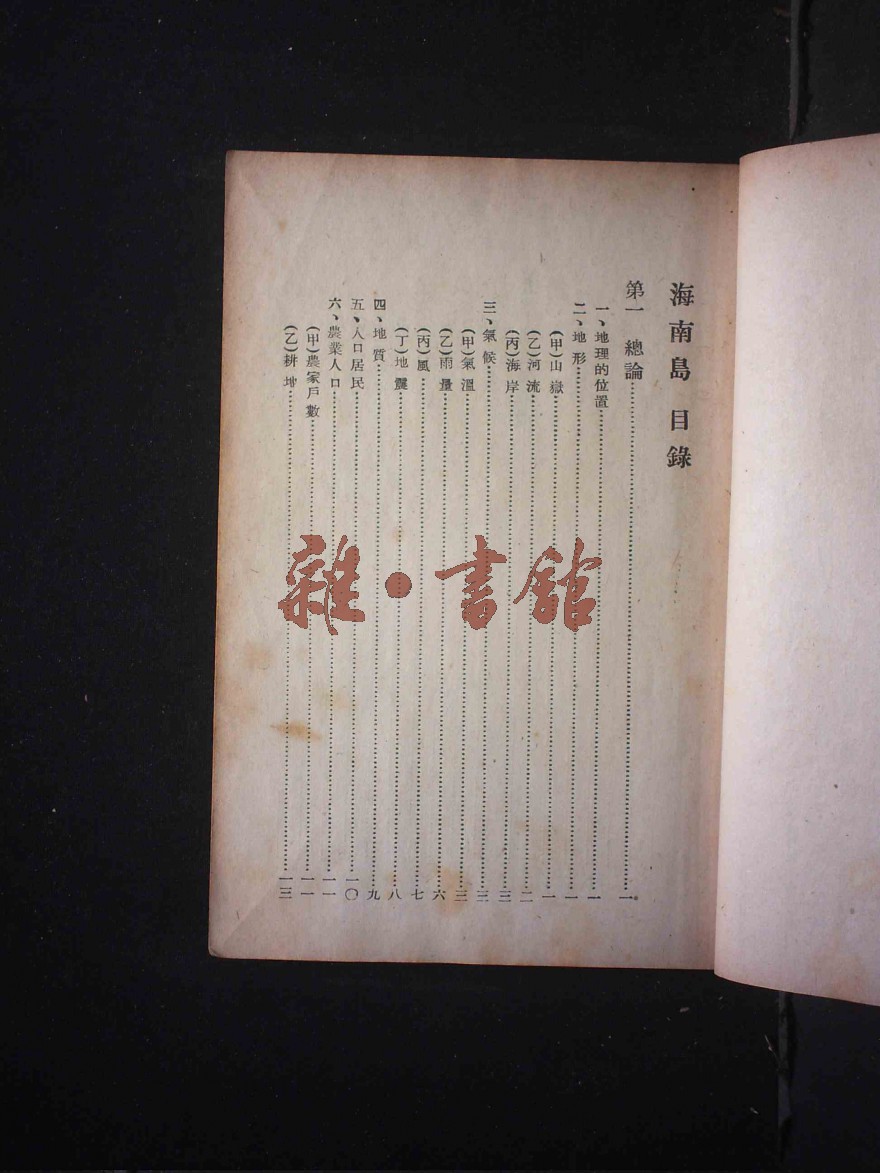 海南島 目錄
第一 總論……一
一、地理的位置……一
二、地形……一
(甲)山嶽……一
(乙)河流……二
(丙)海岸……三
三、氣候……三
(甲)氣溫……三
(乙)雨量……六
(丙)風……七
(丁)地震……八
四、地質……九
五、人口居民……一〇
六、農業人口……一一
(甲)農家戶數……一一
(乙)耕地……一三
雜·書館